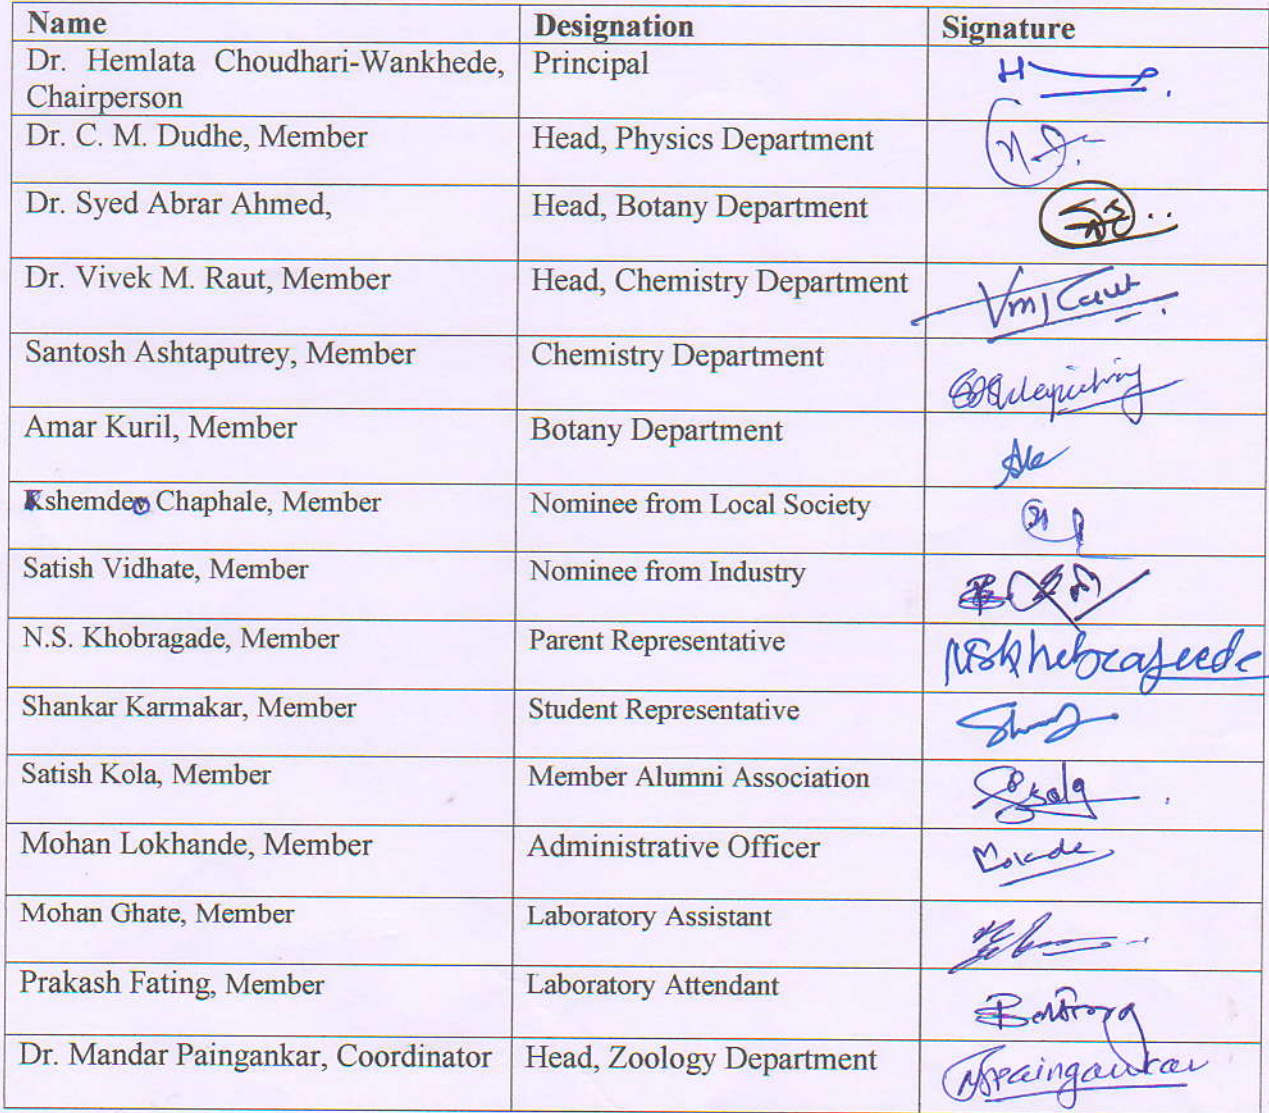 Name Designation Signature
Dr. Hemlata Choudhari-Wankhede, Principal
Chairperson
Dr. C. M. Dudhe, Member Head, Physics Department
Dr. Syed Abrar Ahmed, Head, Botany Department
Dr. Vivek M. Raut, Member Head, Chemistry Department VmRaut
Santosh Ashtaputrey, Member Chemistry Department
Amar Kuril, Member Botany Department
Kshemdev Chaphale, Member Nominee from Local Society
Satish Vidhate, Member Nominee from Industry
N.S. Khobragade, Member Parent Representative NSKhobragade
Shankar Karmakar, Member Student Representative
Satish Kola, Member Member Alumni Association
Mohan Lokhande, Member Administrative Officer
Mohan Ghate, Member Laboratory Assistant
Prakash Fating, Member Laboratory Attendant
Dr. Mandar Paingankar, Coordinator Head, Zoology Department Mspaingankar